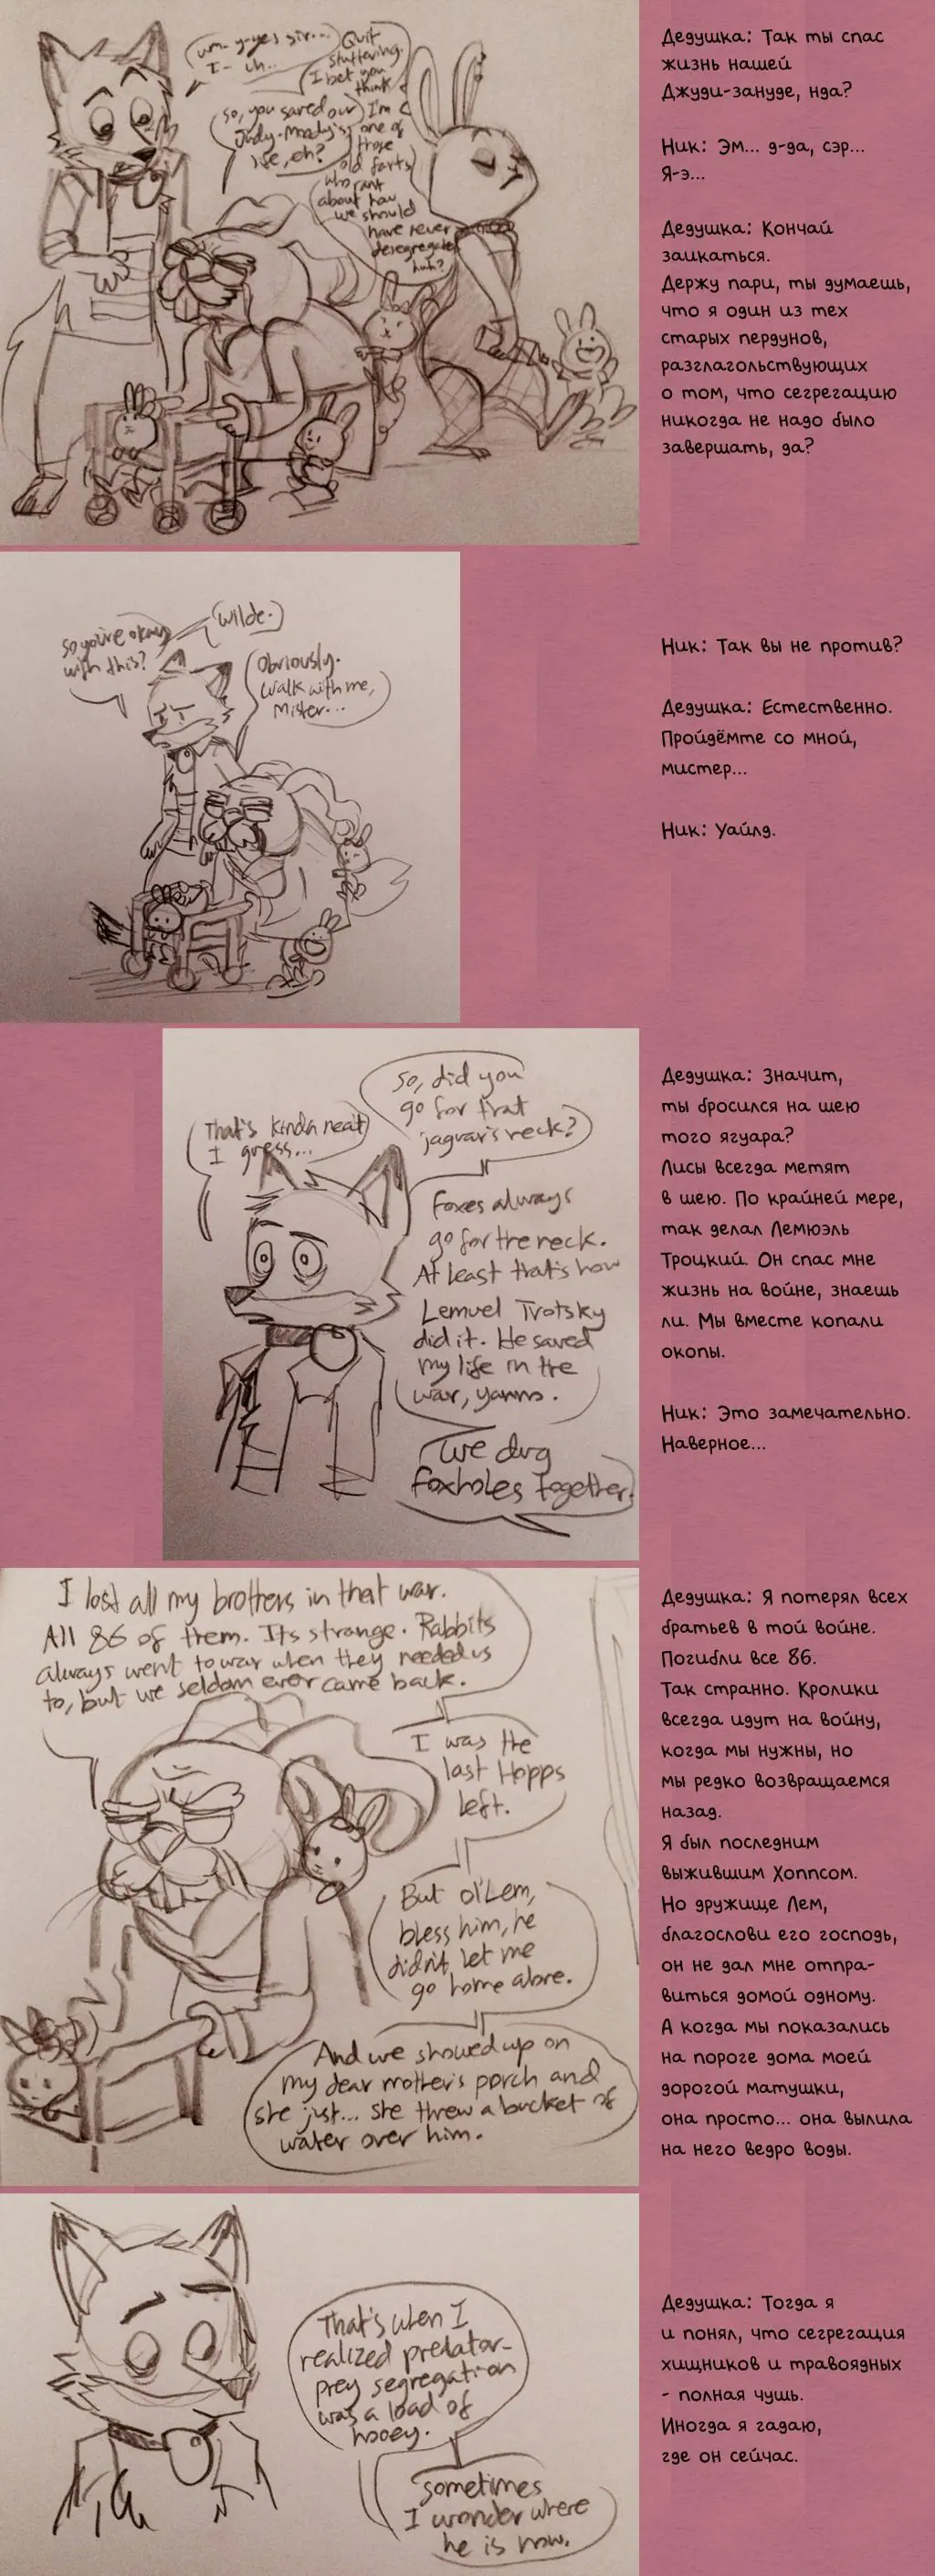 um- y-yes sir...
I- uh..
Quit
stuttering.
I bet you
think
I'm
one of
those
old farts
who rant
about how
we should
have never
desegregated
huh?
so, you saved our
Judy-Moody's
life, eh?
Дедушка: Так ты спас
жизнь нашей
Джуди-зануде, нда?
Ник: Эм... д-да, сэр...
Я-э...
Дедушка: Кончай
заикаться.
Держу пари, ты думаешь,
что я один из тех
старых пердунов,
разглагольствующих
о том, что сегрегацию
никогда не надо было
завершать, да?
So you're okay
with this?
Obviously.
Walk with me,
Mister...
Wilde.
Ник: Так вы не против?
Дедушка: Естественно.
Пройдёмте со мной,
мистер...
Ник: Уайлд.
So, did you
go for that
jaguar's neck?
Foxes always
go for the neck.
At least that's how
Lemuel Trotsky
did it. He saved
my life in the
war, yanno.
We dug
foxholes together.
That's kinda neat
I guess...
Дедушка: Значит,
ты бросился на шею
того ягуара?
Лисы всегда метят
в шею. По крайней мере,
так делал Лемюэль
Троцкий. Он спас мне
жизнь на войне, знаешь
ли. Мы вместе копали
окопы.
Ник: Это замечательно.
Наверное...
I lost all my brothers in that war.
All 86 of them. Its strange. Rabbits
always went to war when they needed us
to, but we seldom ever came back.
I was the
last Hopps
left.
But ol'Lem,
bless him, he
didn't let me
go home alone.
And we showed up on
my dear mother's porch and
she just... she threw a bucket of
water over him.
Дедушка: Я потерял всех
братьев в той войне.
Погибли все 86.
Так странно. Кролики
всегда идут на войну,
когда мы нужны, но
мы редко возвращаемся
назад.
Я был последним
выжившим Хоппсом.
Но дружище Лем,
благослови его господь,
он не дал мне отпра-
виться домой одному.
А когда мы показались
на пороге дома моей
дорогой матушки,
она просто... она вылила
на него ведро воды.
That's when I
realized predator-
prey segregation
was a load of
hooey.
Sometimes
I wonder where
he is now.
Дедушка: Тогда я
и понял, что сегрегация
хищников и травоядных
- полная чушь.
Иногда я гадаю,
где он сейчас.